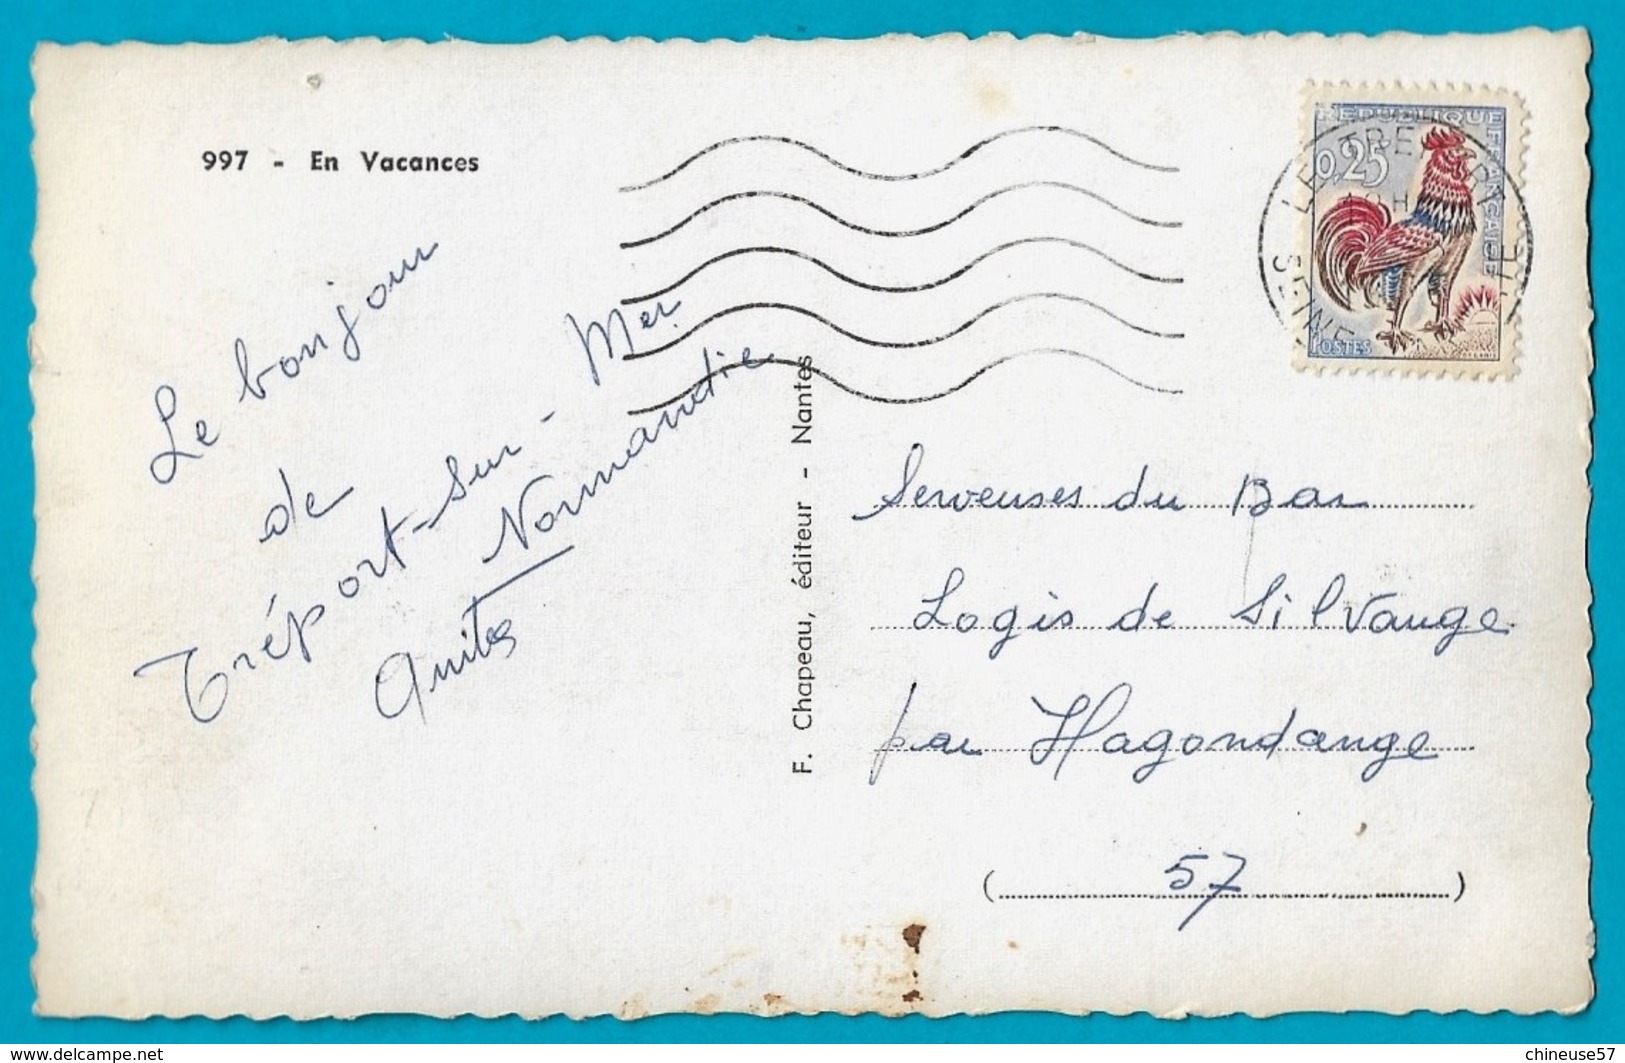 997 - En Vacances
Le bonjour
de
Tréport-sur-Mer
Normandie
Anita
F. Chapeau, éditeur - Nantes
REPUBLIQUE FRANÇAISE
0,25
POSTES
LE TREPORT
SEINE
Serveuses du Bar
Logis de Silvange
par Hagondange
(57)
delcampe.net
chineuse57